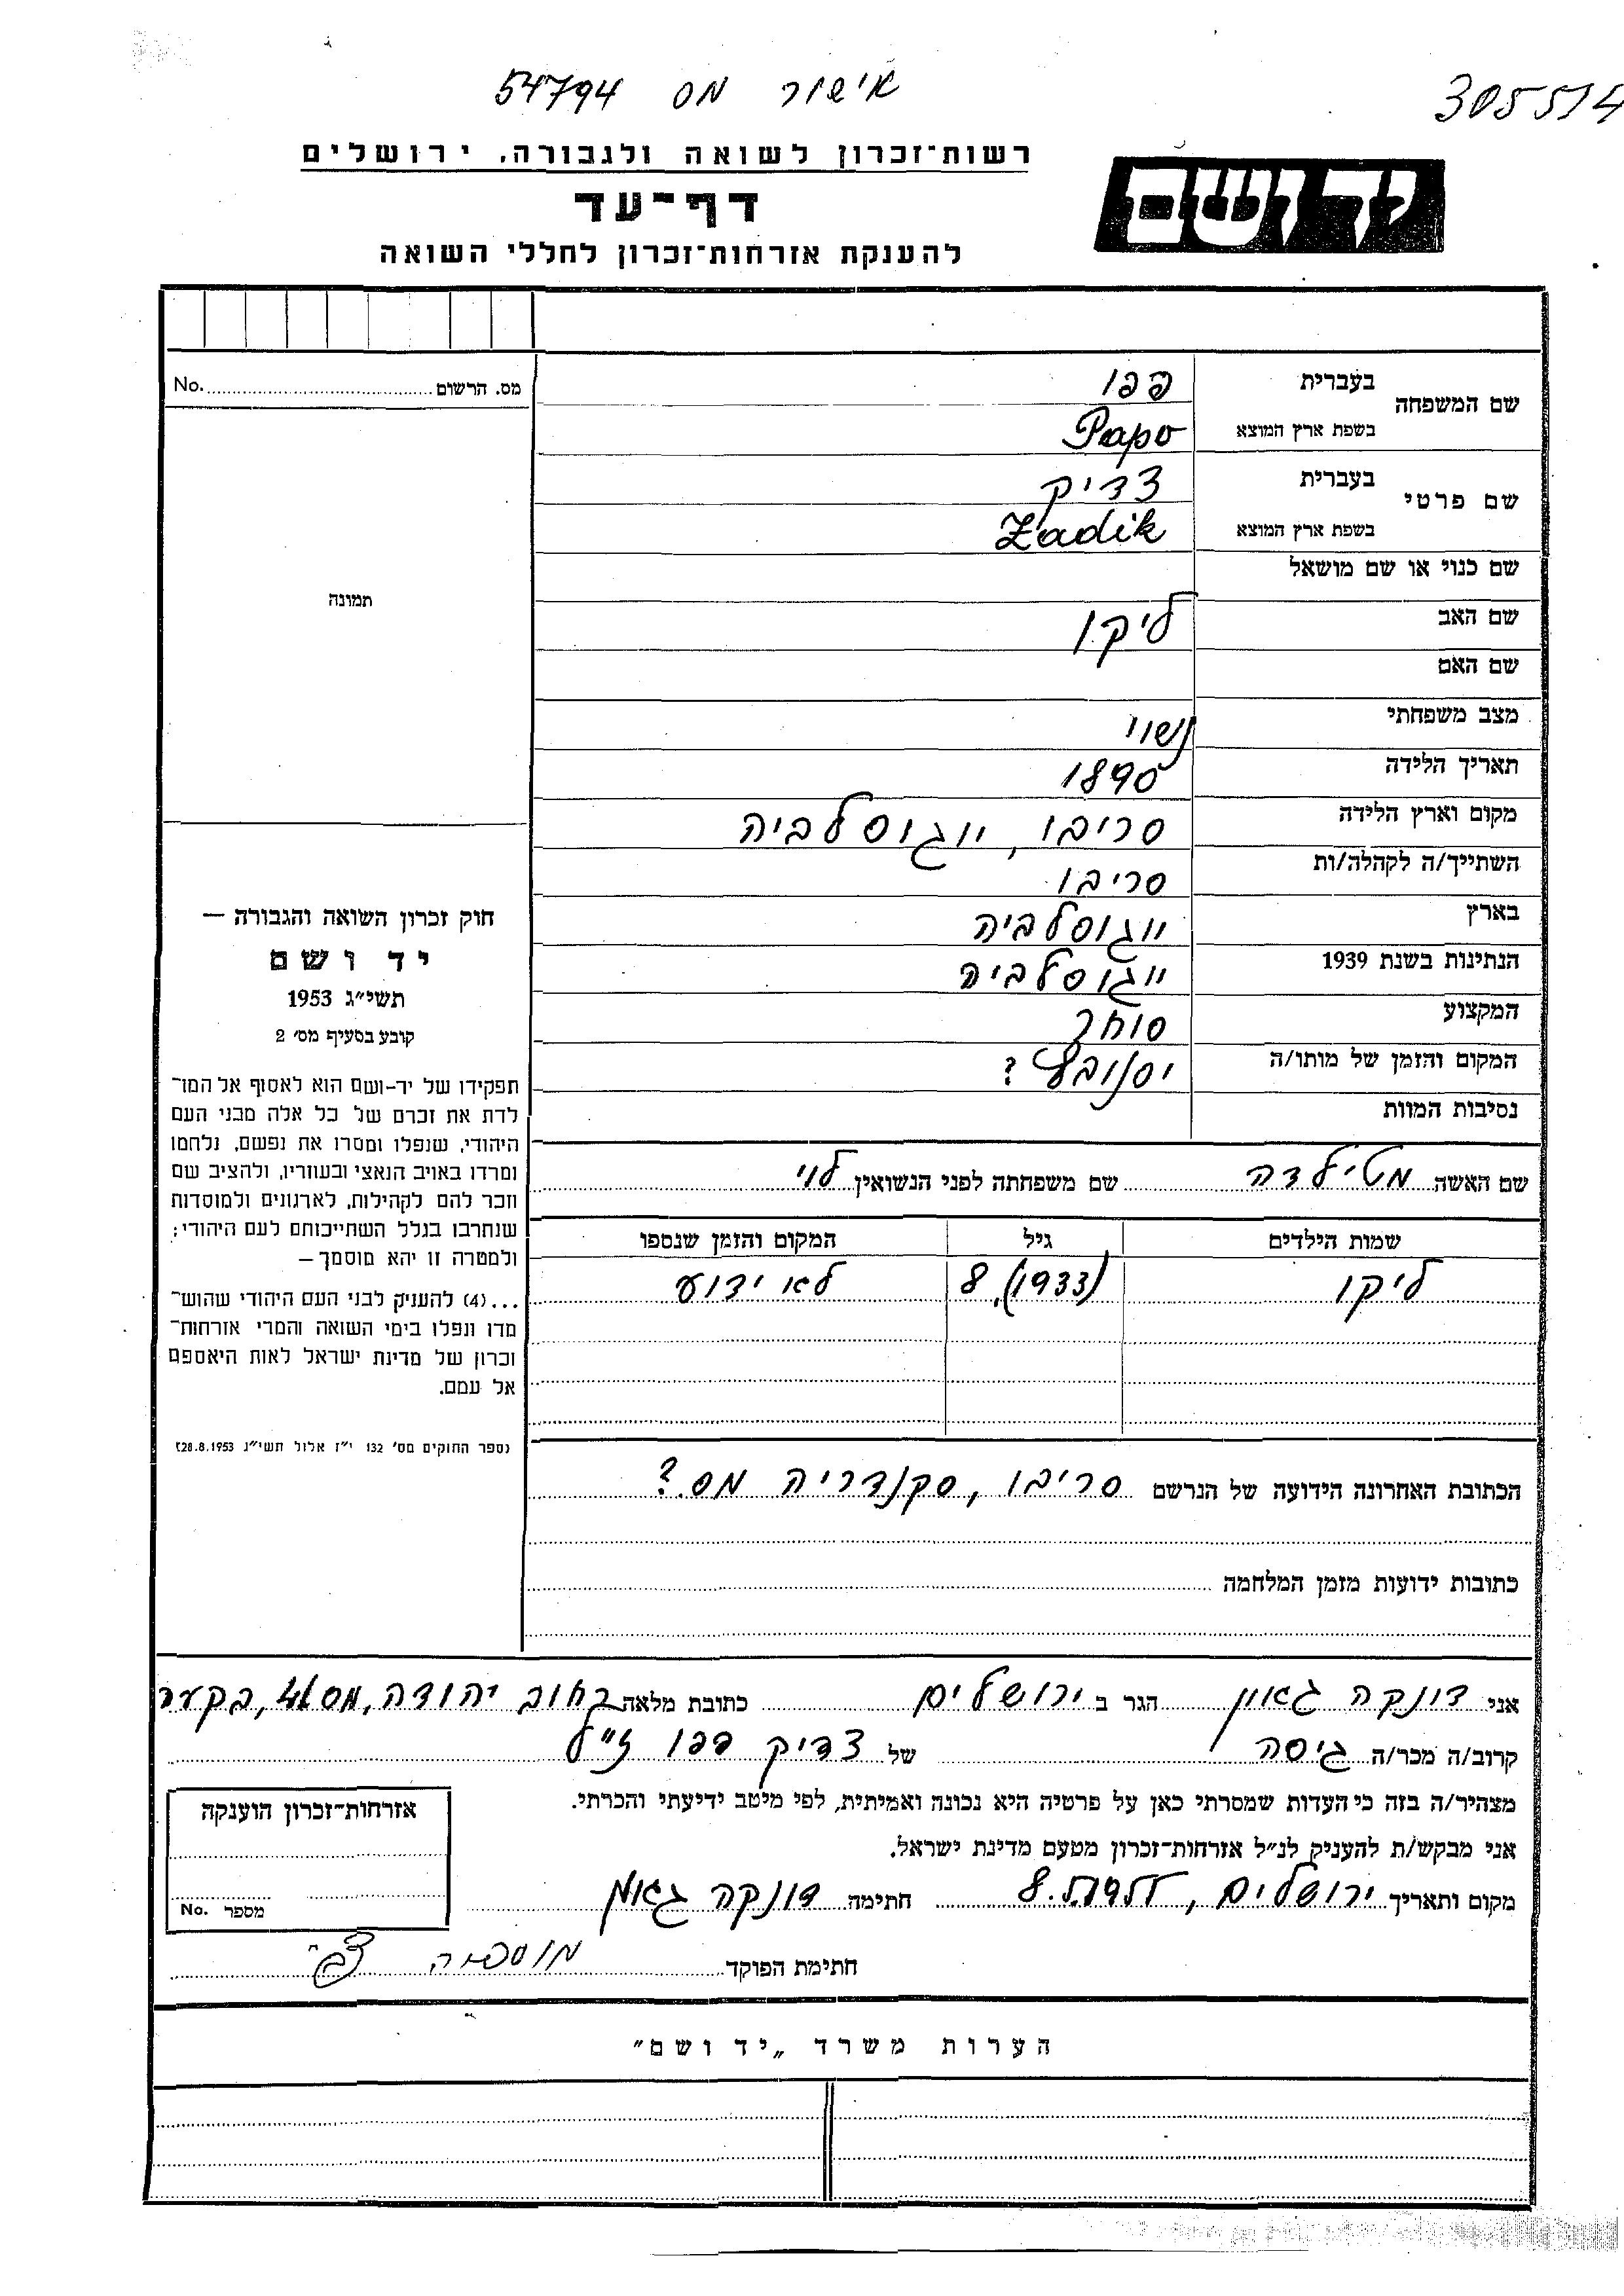 305514
אישור מס 54794
יד ושם
רשות־זכרון לשואה ולגבורה, ירושלים
דף־עד
להענקת אזרחות־זכרון לחללי השואה
שם המשפחה בעברית פפו
בשפת ארץ המוצא Papo
שם פרטי בעברית צדיק
בשפת ארץ המוצא Zadik
שם כנוי או שם מושאל
שם האב ליקו
שם האם
מצב משפחתי נשוי
תאריך הלידה 1890
מקום וארץ הלידה סריבו, יוגוסלביה
השתייך/ה לקהלה/ות סריבו
בארץ יוגוסלביה
הנתינות בשנת 1939 יוגוסלביה
המקצוע סוחר
המקום והזמן של מותו/ה יסנובץ ?
נסיבות המוות
שם האשה מטילדה שם משפחתה לפני הנשואין לוי
שמות הילדים גיל המקום והזמן שנספו
ליקו 8, (1933) לא ידוע
הכתובת האחרונה הידועה של הנרשם סריבו, סקנדריה מס. ?
כתובות ידועות מזמן המלחמה
מס. הרשום No.
תמונה
חוק זכרון השואה והגבורה —
יד ושם
תשי״ג 1953
קובע בסעיף מס׳ 2
תפקידו של יד-ושם הוא לאסוף אל המו־
לדת את זכרם של כל אלה מבני העם
היהודי, שנפלו ומסרו את נפשם, נלחמו
ומרדו באויב הנאצי ובעוזריו, ולהציב שם
וזכר להם לקהילות, לארגונים ולמוסדות
שנחרבו בגלל השתייכותם לעם היהודי;
ולמטרה זו יהא מוסמך —
...(4) להעניק לבני העם היהודי שהוש־
מדו ונפלו בימי השואה והמרי אזרחות־
זכרון של מדינת ישראל לאות היאספם
אל עמם.
(ספר החוקים מס׳ 132 י״ז אלול תשי״ג 28.8.1953)
אני דונקה גאון הגר ב ירושלים כתובת מלאה רחוב יהודה, מס 4, בקעה
קרוב/ה מכר/ה גיסה של צדיק פפו ז״ל
מצהיר/ה בזה כי העדות שמסרתי כאן על פרטיה היא נכונה ואמיתית, לפי מיטב ידיעתי והכרתי.
אני מבקש/ת להעניק לנ״ל אזרחות־זכרון מטעם מדינת ישראל.
מקום ותאריך ירושלים, חתימה דונקה גאון
חתימת הפוקד
אזרחות־זכרון הוענקה
מספר No.
הערות משרד „יד ושם״